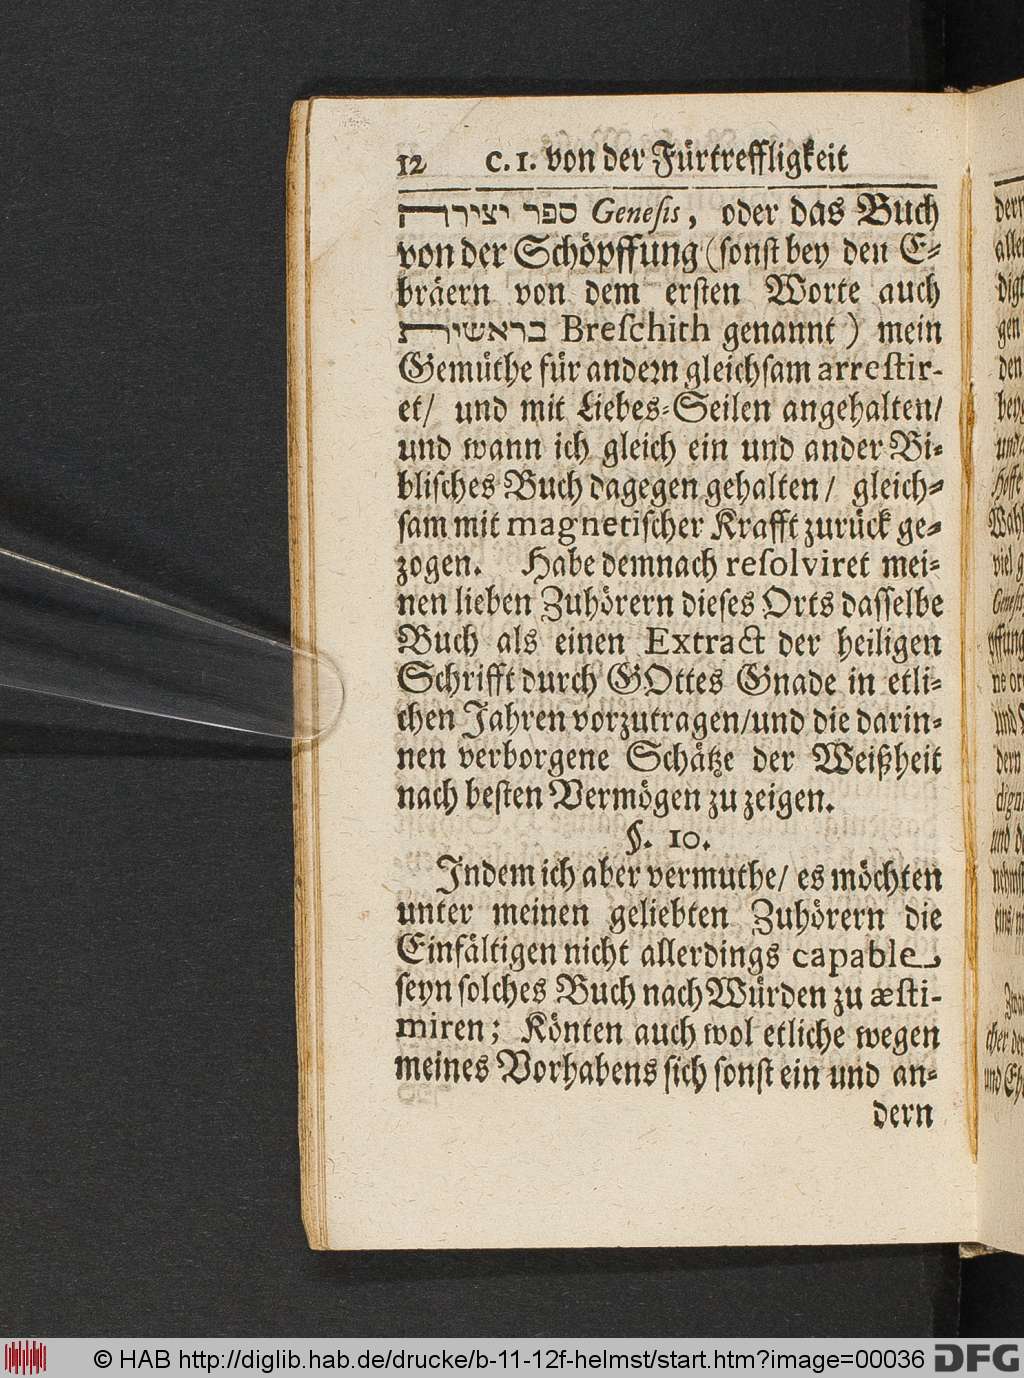 12 C. 1. von der Fürtreffligkeit
ספר יצירה Genesis, oder das Buch
von der Schöpffung (sonst bey den E-
bräern von dem ersten Worte auch
בראשית Breschith genannt) mein
Gemüthe für andern gleichsam arrestir-
et/ und mit Liebes-Seilen angehalten/
und wann ich gleich ein und ander Bi-
blisches Buch dagegen gehalten/ gleich-
sam mit magnetischer Krafft zurück ge-
zogen. Habe demnach resolviret mei-
nen lieben Zuhörern dieses Orts dasselbe
Buch als einen Extract der heiligen
Schrifft durch GOttes Gnade in etli-
chen Jahren vorzutragen/und die darin-
nen verborgene Schätze der Weißheit
nach besten Vermögen zu zeigen.
§. 10.
Indem ich aber vermuthe/ es möchten
unter meinen geliebten Zuhörern die
Einfältigen nicht allerdings capable
seyn solches Buch nach Würden zu æsti-
miren; Könten auch wol etliche wegen
meines Vorhabens sich sonst ein und an-
dern
© HAB http://diglib.hab.de/drucke/b-11-12f-helmst/start.htm?image=00036 DFG